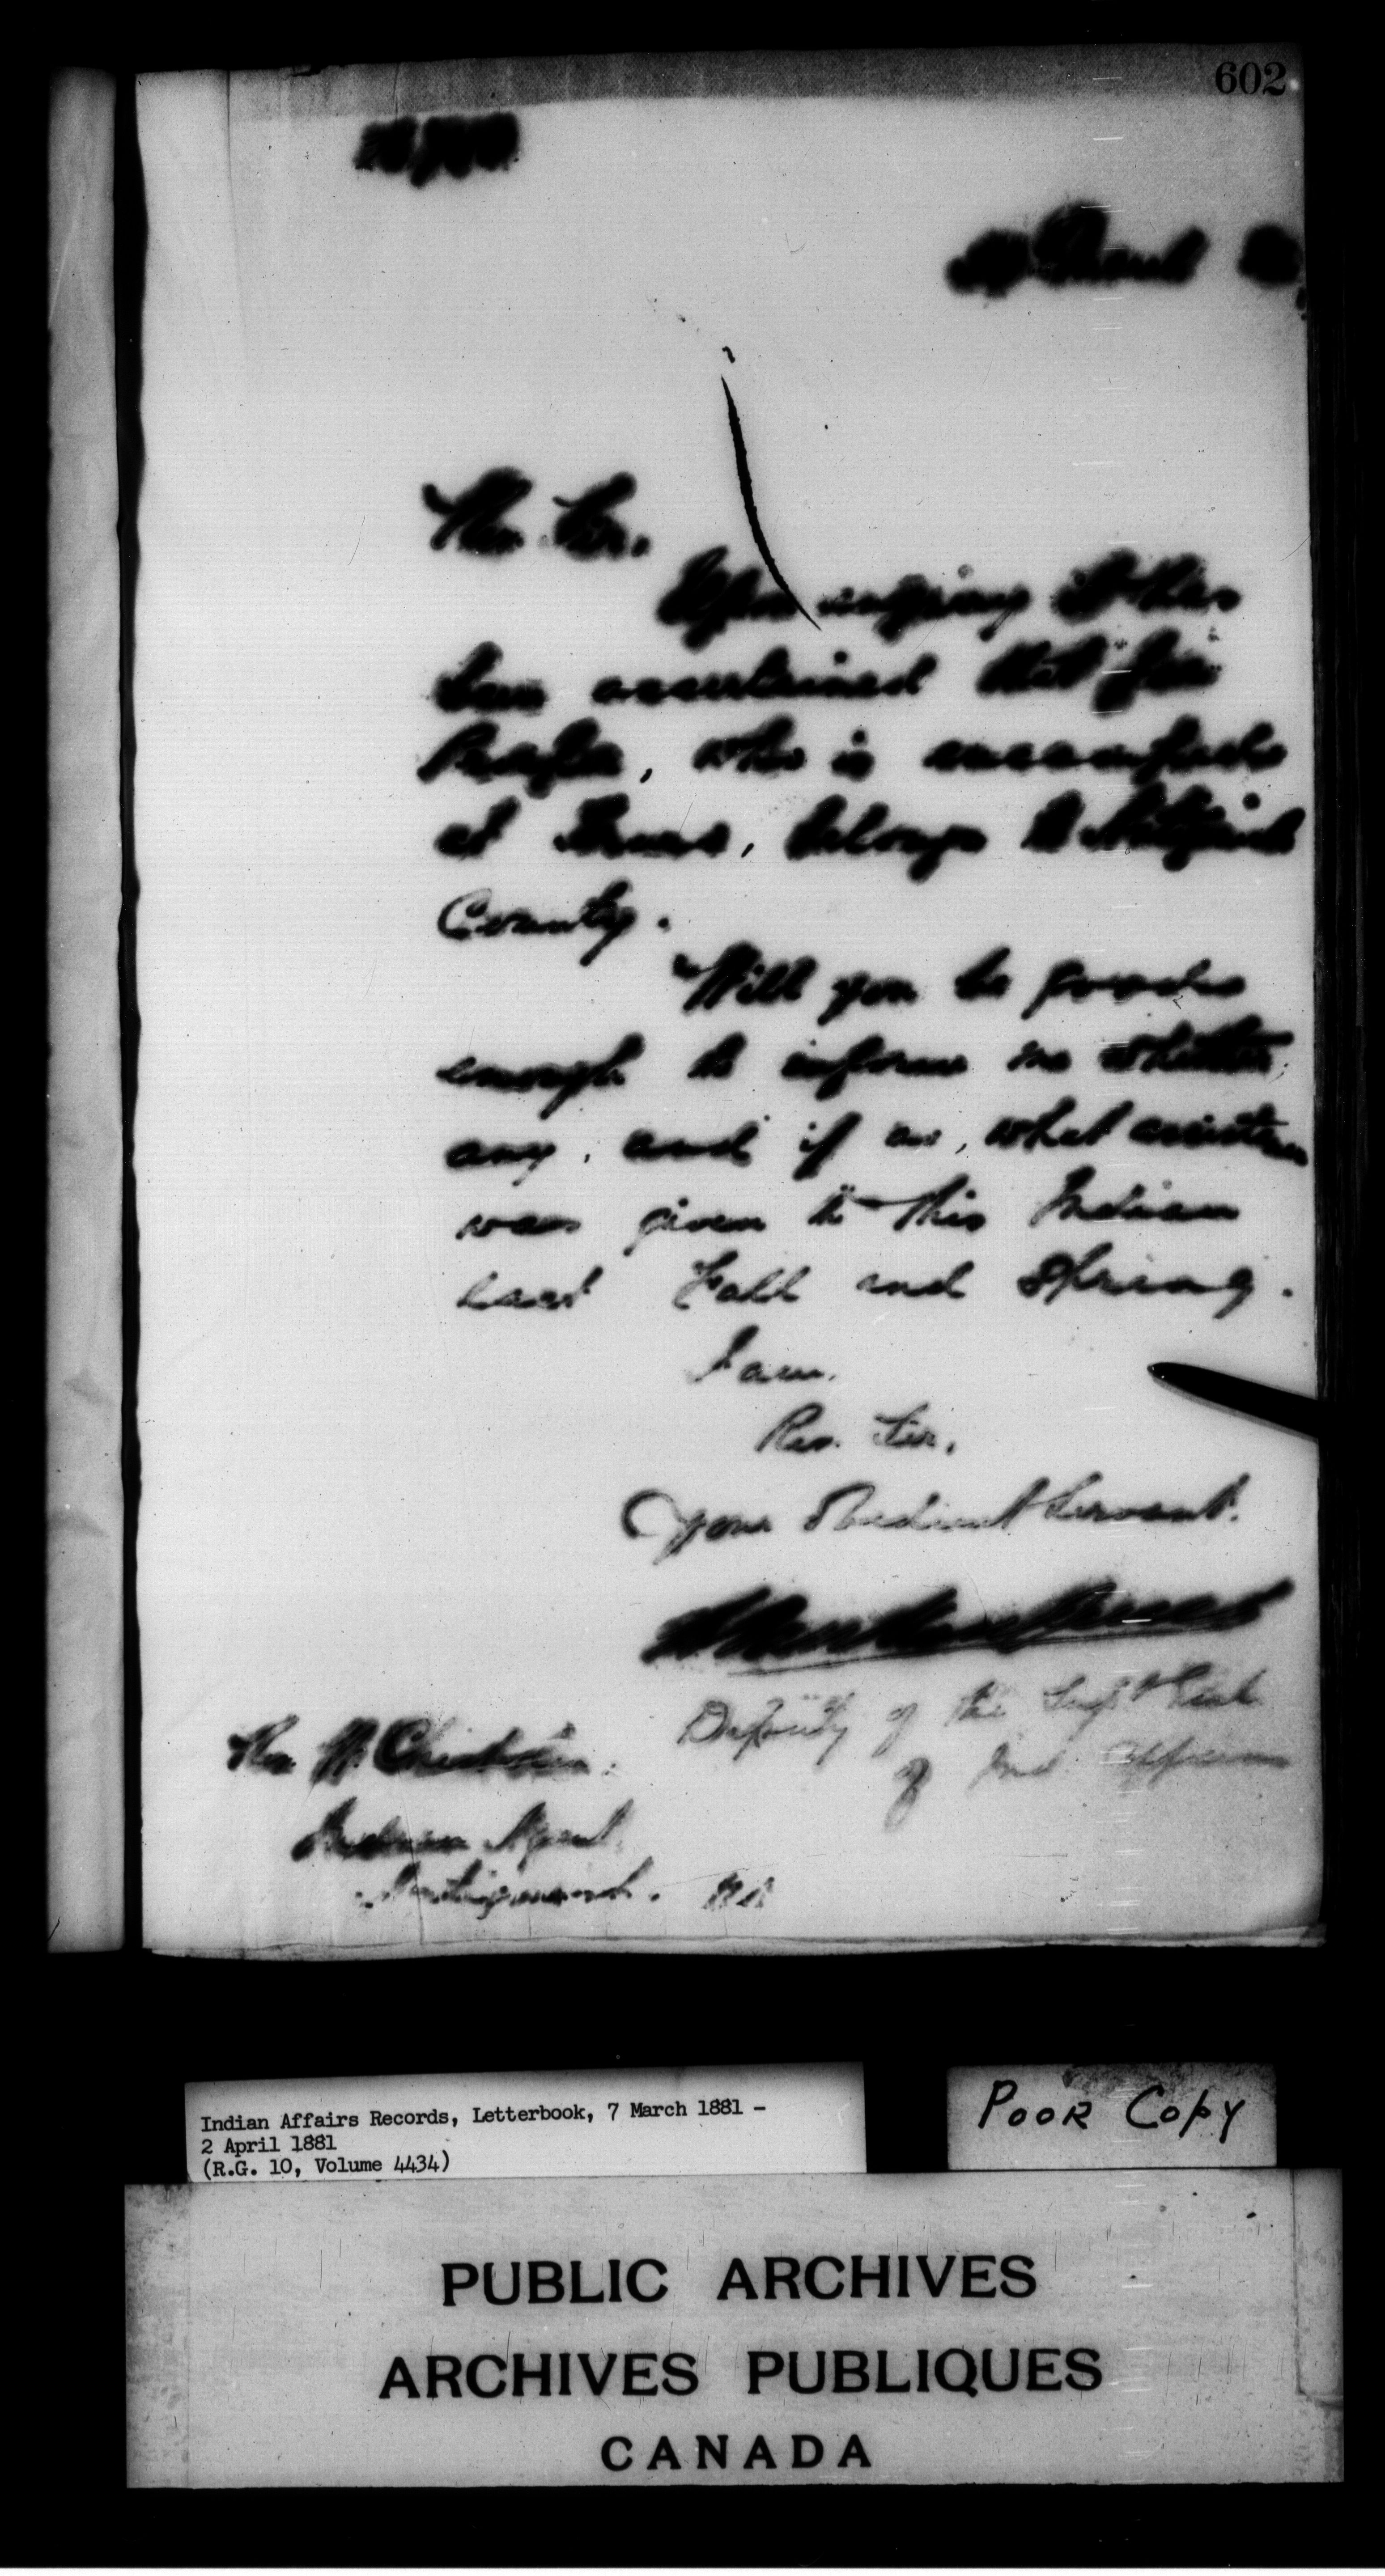 602
March
Rev. Sir,
Upon it has
been ascertained that
who is encamped
at Truro, belongs to Antigonish
County.
Will you be good
enough to inform me whether
any, and if so, what assistance
was given to this Indian
last Fall and Spring.
I am,
Rev. Sir,
Your Obedient Servant.
Deputy of the Supt Genl
of Ind Affairs
Rev W. Chisholm.
Indian Agent,
Antigonish. NS
Indian Affairs Records, Letterbook, 7 March 1881 -
2 April 1881
(R.G. 10, Volume 4434)
POOR COPY
PUBLIC ARCHIVES
ARCHIVES PUBLIQUES
CANADA